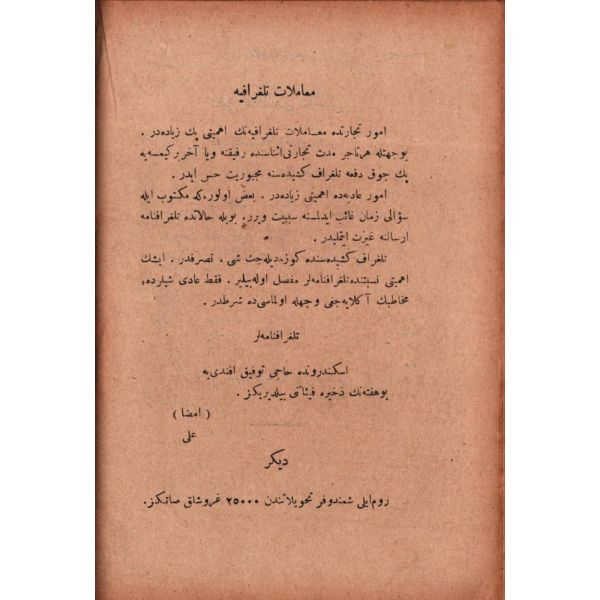 معاملات تلغرافیه
امور تجارتده معـاملات تلغرافیه‌نك اهمیتی پك زیاده‌در .
بوجهتله هر تاجر مدت تجارتی اثناسنده رفیقنه ویا آخر بر کیمسه‌یه
پك چوق دفعه تلغراف کشیده‌سنه مجبوریت حس ایدر .
امور عادیه‌ده اهمیتی زیاده‌در . بعض اولور،که مکتوب ایله
سؤالی زمان غائب ایدلمسنه سببیت ویرر. بویله حالاتده تلغرافنامه
ارسالنه غیرت ایتملیدر .
تلغراف کشیده‌سنده کوزه‌دیله‌جك شی ، تصرفدر . ایشك
اهمیتی نسبتنده تلغرافنامه‌لر مفصل اوله‌بیلیر . فقط عادی شیلرده؛
مخاطبك آکلایه‌جغی وجهله اولماسی‌ده شرطدر .
تلغرافنامه‌لر
اسکندرونده حاجی توفیق افندی‌یه
بوهفته‌نك ذخیره فیئاتنی بیلدیریکز .
( امضا )
علی
دیکر
روم‌ایلی شمندوفر تحویلاتندن ٢٥٠٠٠ غروشلق صاتکز .